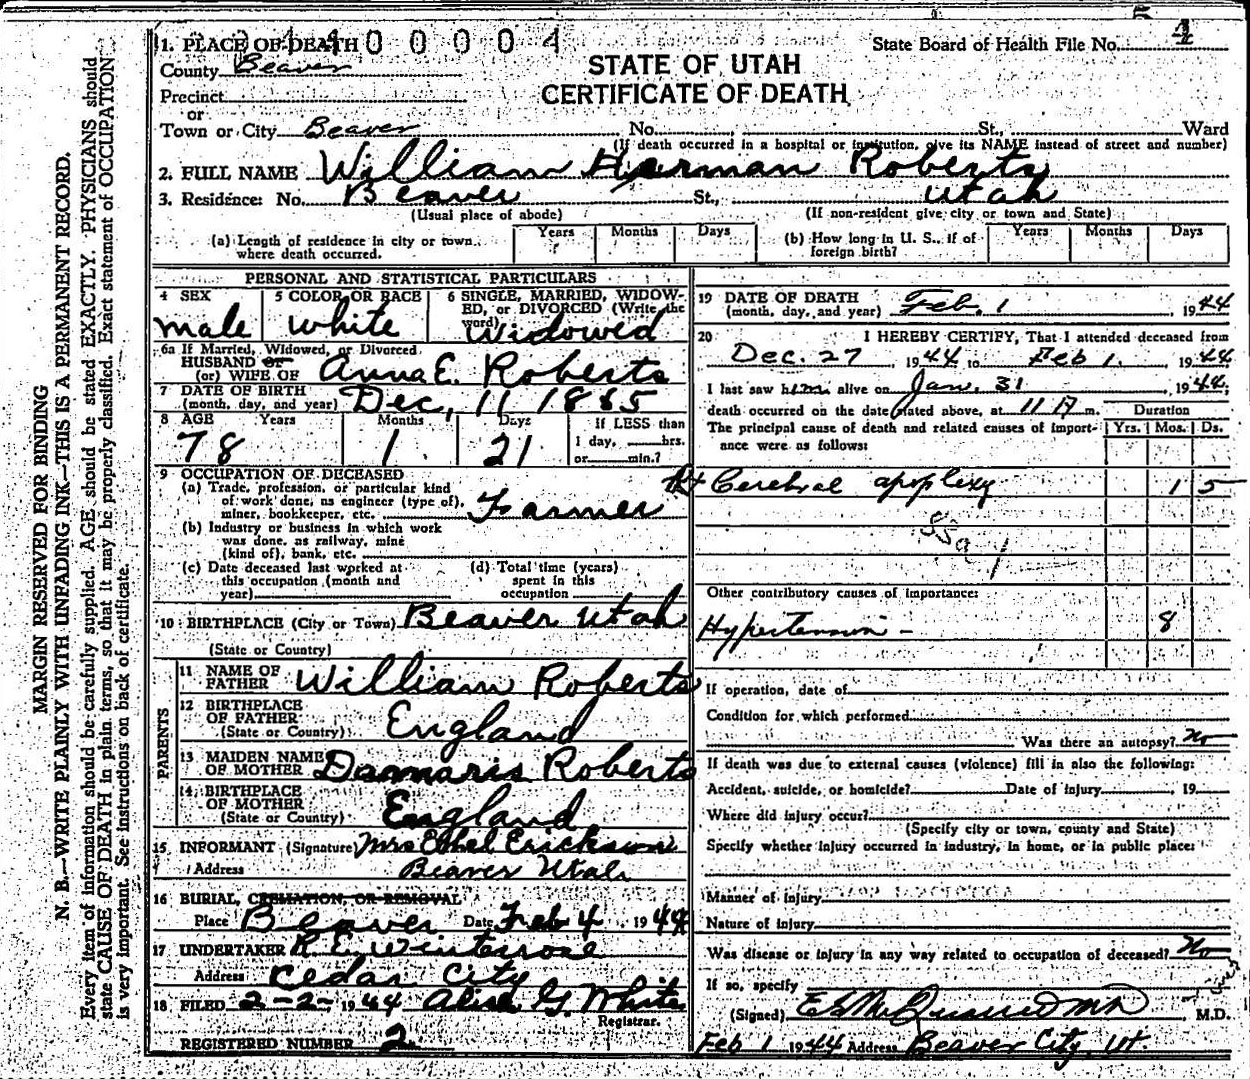 5
1. PLACE OF DEATH 400004
State Board of Health File No. 4
County Beaver
STATE OF UTAH
CERTIFICATE OF DEATH
Precinct
or
Town or City Beaver No. St., Ward
(If death occurred in a hospital or institution, give its NAME instead of street and number)
2. FULL NAME William Herman Roberts
3. Residence: No. Beaver St., Utah
(Usual place of abode) (If non-resident give city or town and State)
(a) Length of residence in city or town where death occurred. Years Months Days
(b) How long in U. S., if of foreign birth? Years Months Days
PERSONAL AND STATISTICAL PARTICULARS
4 SEX
male
5 COLOR OR RACE
White
6 SINGLE, MARRIED, WIDOWED, or DIVORCED (Write the word)
Widowed
6a If Married, Widowed, or Divorced
HUSBAND or
(or) WIFE OF Anna E. Roberts
7 DATE OF BIRTH
(month, day, and year) Dec, 11 1865
8 AGE Years Months Days If LESS than
1 day, hrs.
or min.?
78 1 21
9 OCCUPATION OF DECEASED
(a) Trade, profession, or particular kind
of work done, as engineer (type of),
miner, bookkeeper, etc. Farmer
(b) Industry or business in which work
was done, as railway, mine
(kind of), bank, etc.
(c) Date deceased last worked at
this occupation (month and
year)
(d) Total time (years)
spent in this
occupation
10 BIRTHPLACE (City or Town) Beaver Utah
(State or Country)
PARENTS
11 NAME OF
FATHER William Roberts
12 BIRTHPLACE
OF FATHER
(State or Country) England
13 MAIDEN NAME
OF MOTHER Danmaris Roberts
14 BIRTHPLACE
OF MOTHER
(State or Country) England
15 INFORMANT (Signature) Mrs Ethel Erickson
Address Beaver Utah
16 BURIAL, CREMATION, OR REMOVAL
Place Beaver Date Feb 4 1944
17 UNDERTAKER R. E. Winterose
Address Cedar City
18 FILED 2-2-, 1944 Alise G. White
Registrar.
REGISTERED NUMBER 2
19 DATE OF DEATH
(month, day, and year) Feb. 1, 1944
20 I HEREBY CERTIFY, That I attended deceased from
Dec. 27, 1944 to Feb 1., 1944
I last saw him alive on Jan. 31, 1944,
death occurred on the date stated above, at 11 A m.
Duration
The principal cause of death and related causes of importance were as follows: Yrs. Mos. Ds.
Rt Cerebral apoplexy 1 5
83a 1
Other contributory causes of importance:
Hypertension - 8
If operation, date of
Condition for which performed
Was there an autopsy? No
If death was due to external causes (violence) fill in also the following:
Accident, suicide, or homicide? Date of injury, 19
Where did injury occur?
(Specify city or town, county and State)
Specify whether injury occurred in industry, in home, or in public place:
Manner of injury
Nature of injury
Was disease or injury in any way related to occupation of deceased? No
If so, specify
(Signed) M.D.
Feb 1 1944 Address Beaver City, Ut
MARGIN RESERVED FOR BINDING
N. B.—WRITE PLAINLY WITH UNFADING INK—THIS IS A PERMANENT RECORD.
Every item of information should be carefully supplied. AGE should be stated EXACTLY. PHYSICIANS should
state CAUSE OF DEATH in plain terms, so that it may be properly classified. Exact statement of OCCUPATION
is very important. See instructions on back of certificate.